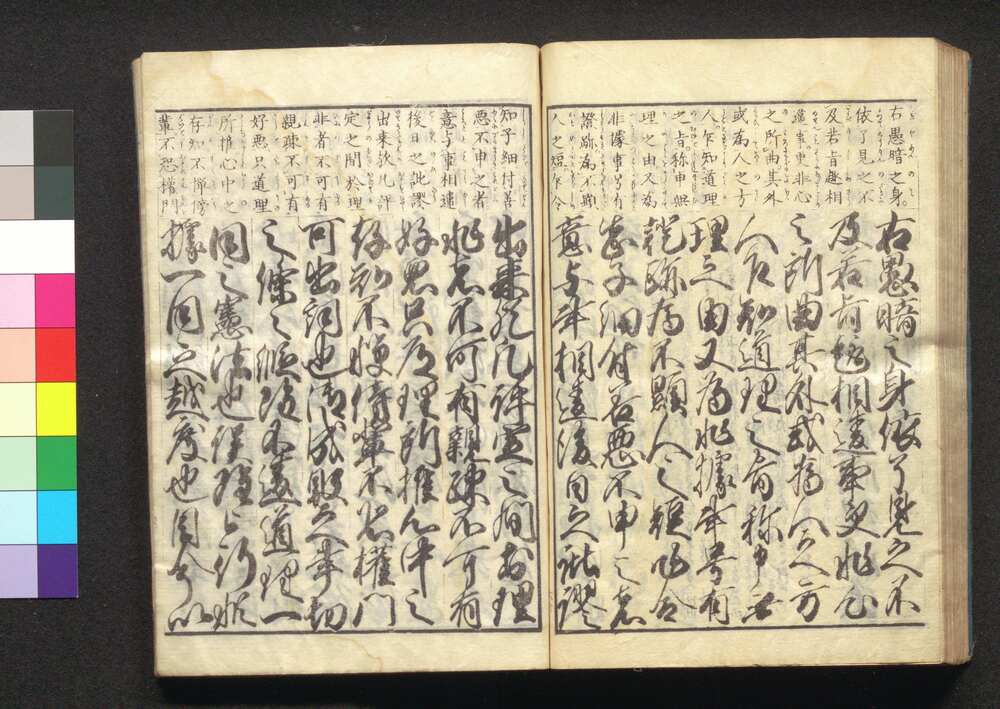 右愚暗之身。
依了見之不
及若旨趣相
違事更非心
之所曲其外
或為人之方
人乍知道理
之旨。称申無
理之由又為
非據事号有
證跡為不顕
人之短乍令
右愚暗之身依了見之不
及若旨趣相違事更非心
之所曲其外或為人之方
人乍知道理之旨称申無
理之由又為非據事号有
證跡為不顯人之短乍令
知子細付善悪不申之者
意与事相違後日之紕謬
知子細付善
悪不申之者
意与事相違
後日之紕謬
出来歟凡評
定之間於理
非者不可有
親疎不可有
好悪只道理
所推心中之
存知不憚傍
輩不恐權門
出来歟凡評定之間於理
非者不可有親疎不可有
好悪只道理所推心中之
存知不憚傍輩不恐權門
可出詞也御成敗之事切
之條々縦雖不違道理一
同之憲法也設雖被行非
據一同之越度也自今以